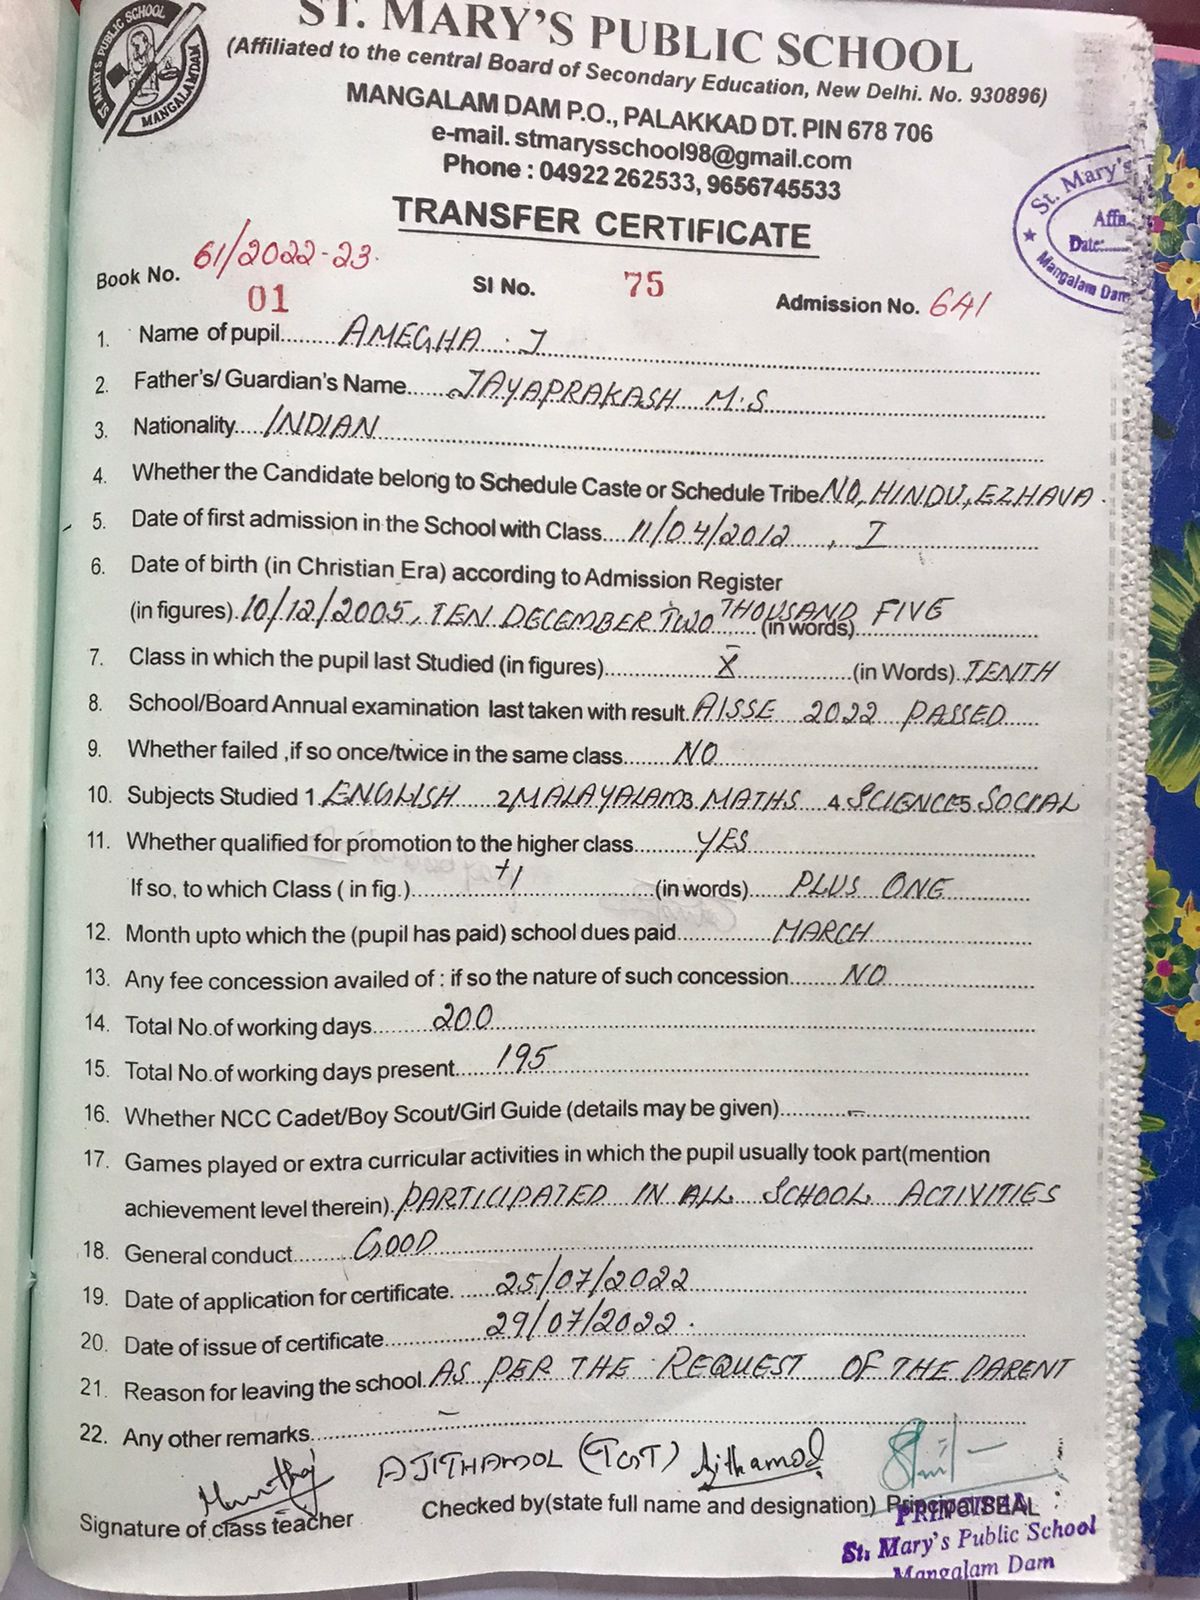 ST. MARY'S PUBLIC SCHOOL
ST. MARY'S PUBLIC SCHOOL
MANGALAMDAM
(Affiliated to the central Board of Secondary Education, New Delhi. No. 930896)
MANGALAM DAM P.O., PALAKKAD DT. PIN 678 706
e-mail. stmarysschool98@gmail.com
Phone : 04922 262533, 9656745533
St. Mary's
Affn.
Date:
Mangalam Dam
TRANSFER CERTIFICATE
Book No. 61/2022-23. 01 SI No. 75 Admission No. 641
1. Name of pupil AMEGHA . J
2. Father's/ Guardian's Name JAYAPRAKASH M.S
3. Nationality INDIAN
4. Whether the Candidate belong to Schedule Caste or Schedule Tribe NO, HINDU, EZHAVA.
5. Date of first admission in the School with Class 11/04/2012 , I
6. Date of birth (in Christian Era) according to Admission Register
(in figures). 10/12/2005, TEN DECEMBER TWO THOUSAND FIVE (in words)
7. Class in which the pupil last Studied (in figures) X (in Words). TENTH
8. School/Board Annual examination last taken with result. AISSE 2022 PASSED
9. Whether failed ,if so once/twice in the same class NO
10. Subjects Studied 1. ENGLISH 2 MALAYALAM 3. MATHS 4. SCIENCE 5. SOCIAL
11. Whether qualified for promotion to the higher class YES
If so, to which Class ( in fig.) +1 (in words) PLUS ONE
12. Month upto which the (pupil has paid) school dues paid MARCH
13. Any fee concession availed of : if so the nature of such concession NO
14. Total No.of working days 200
15. Total No.of working days present 195
16. Whether NCC Cadet/Boy Scout/Girl Guide (details may be given) –
17. Games played or extra curricular activities in which the pupil usually took part(mention
achievement level therein). PARTICIPATED IN ALL SCHOOL ACTIVITIES
18. General conduct GOOD
19. Date of application for certificate. 25/07/2022
20. Date of issue of certificate 29/07/2022.
21. Reason for leaving the school. AS PER THE REQUEST OF THE PARENT
22. Any other remarks –
AJITHAMOL (TGT) Ajithamol
Signature of class teacher Checked by(state full name and designation) Principal SEAL
PRINCIPAL
St. Mary's Public School
Mangalam Dam